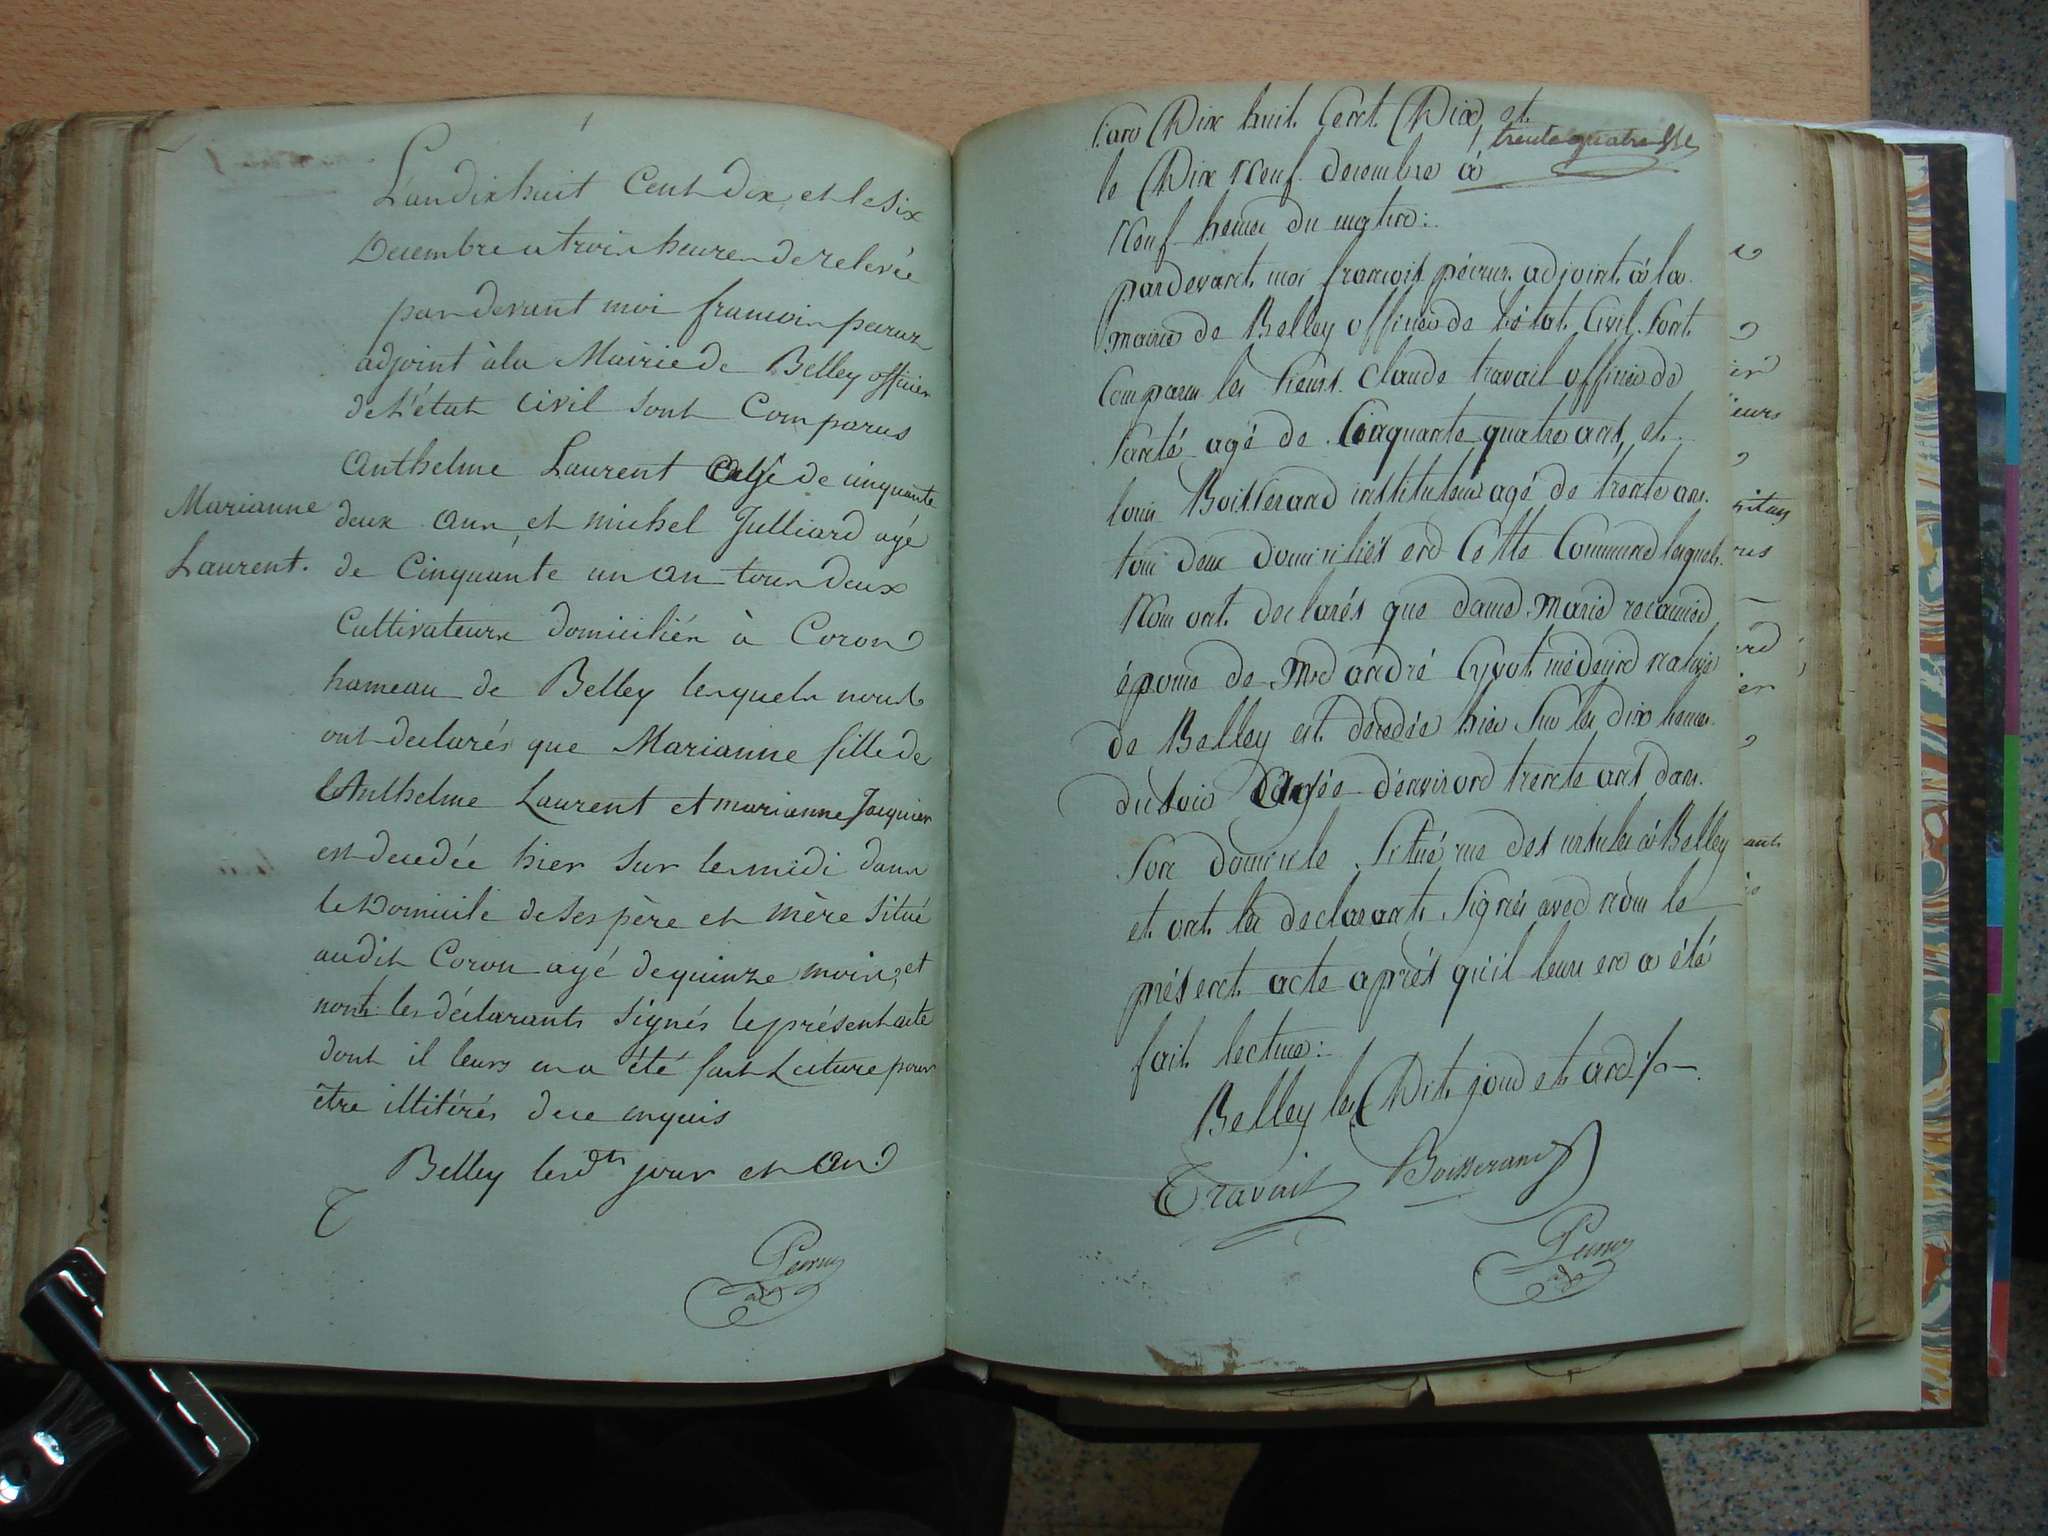 L'an dix huit Cent dix, et le six
Decembre a trois heures de relevée
par devant moi francois
adjoint à la Mairie de Belley officier
de L'état Civil sont Comparus
Anthelme Laurent agé de cinquante
deux ans, et michel Julliard agé
de Cinquante un an tous deux
Cultivateurs domiciliés à Coron
hameau de Belley lesquels nous
ont declarés que Marianne fille de
Anthelme Laurent et marianne Jacquier
est decedée hier sur les midi dans
le Domicile de ses père et mère situé
audit Coron agé de quinze mois, et
nont les déclarants signés le présent acte
dont il leurs en a été fait Lecture pour
être illitérés de ce enquis
Belley les dts jour et an
Marianne
Laurent.
L'an Dix huit Cent Dix, et
trente quatre
le Dix Neuf decembre à
Neuf heures du matin:
pardevant moi francois adjoint à la
mairie de Belley officier de l'état Civil Sont
Comparus les sieurs Claude travail officier de
santé agé de Cinquante quatre ans, et
louis Boisserand instituteur agé de trente ans
tous deux domiciliés en Cette Commune lesquels
Nous ont declarés que dame Marie recamier
épouse de Mr andré Cyvot médecin native
de Belley est décédée hier Sur les dix heures
du soir agée d'environ trente ans dans
Son domicile Situé rue des ursules à Belley
et ont les declarants Signés avec nous le
présent acte aprés qu'il leurs en a été
fait lecture:
Belley les Dits jour et an
Travail Boisserand